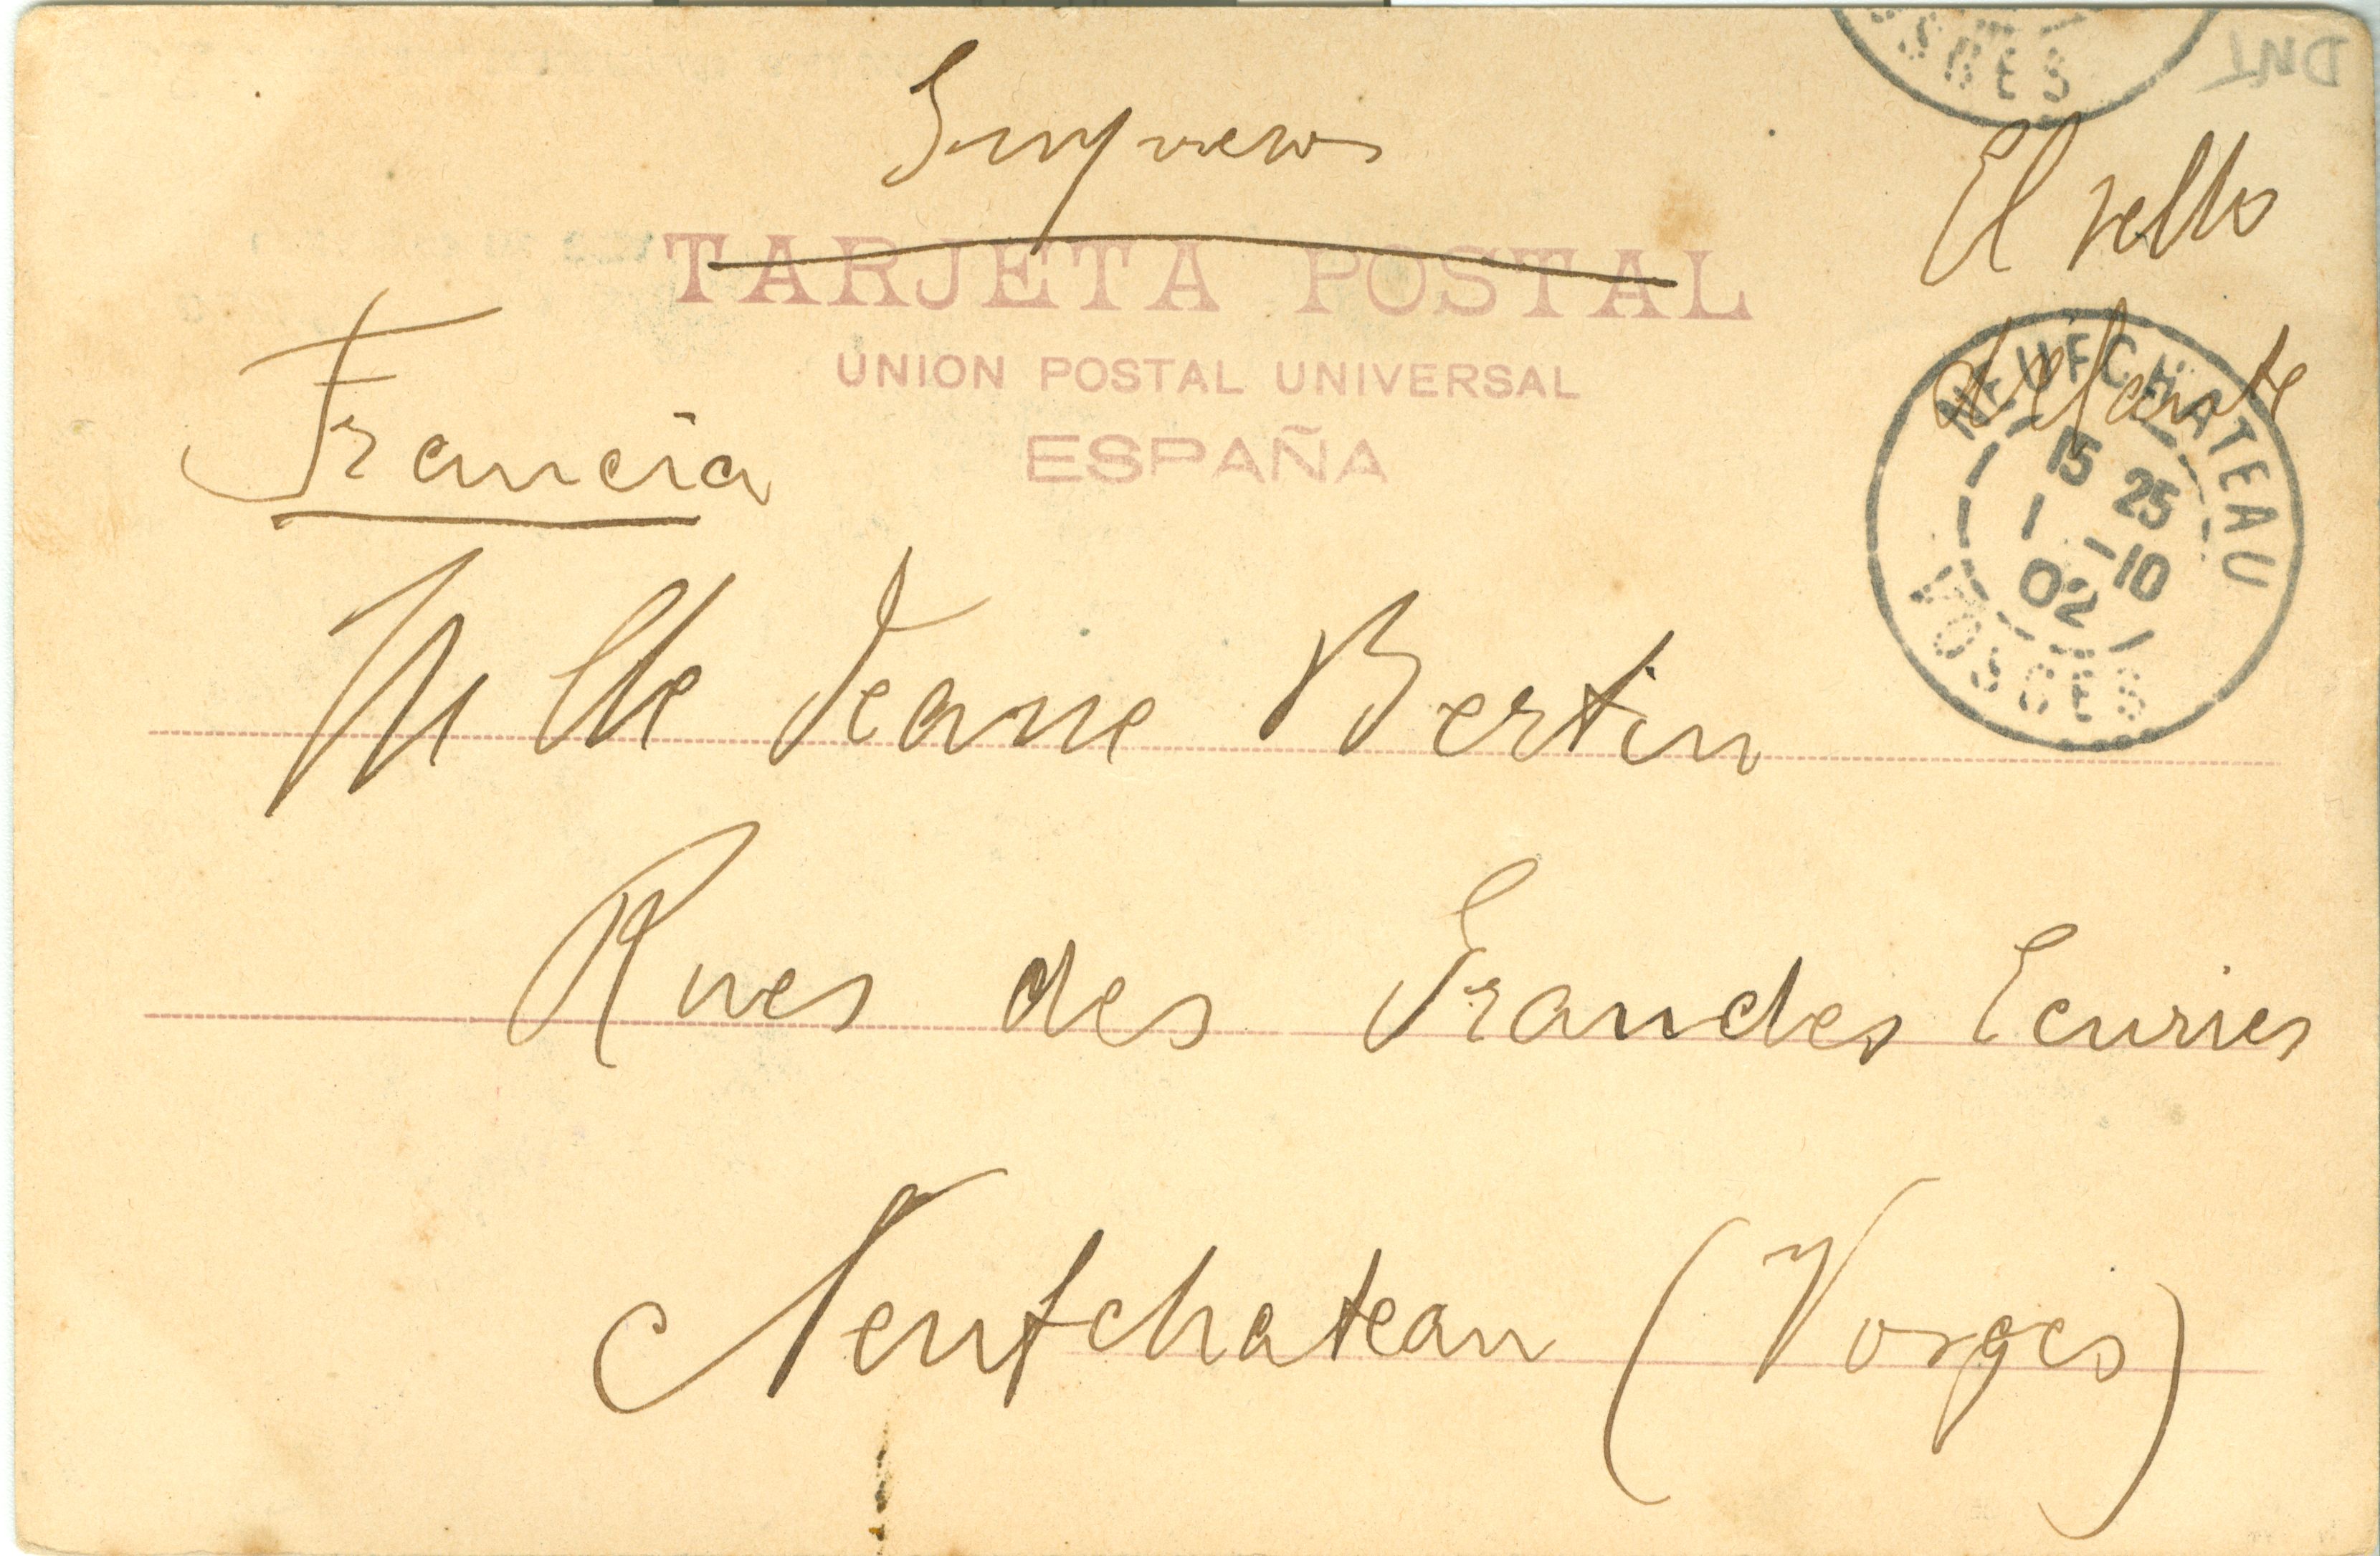 SGES
DNT
Impresos
El sello
TARJETA POSTAL
UNION POSTAL UNIVERSAL
ESPAÑA
delante
Francia
NEUFCHATEAU
15 25
1 -10
02
VOSGES
Mlle Jeane Bertin
Rues des Grandes Ecuries
Neufchateau (Vosges)